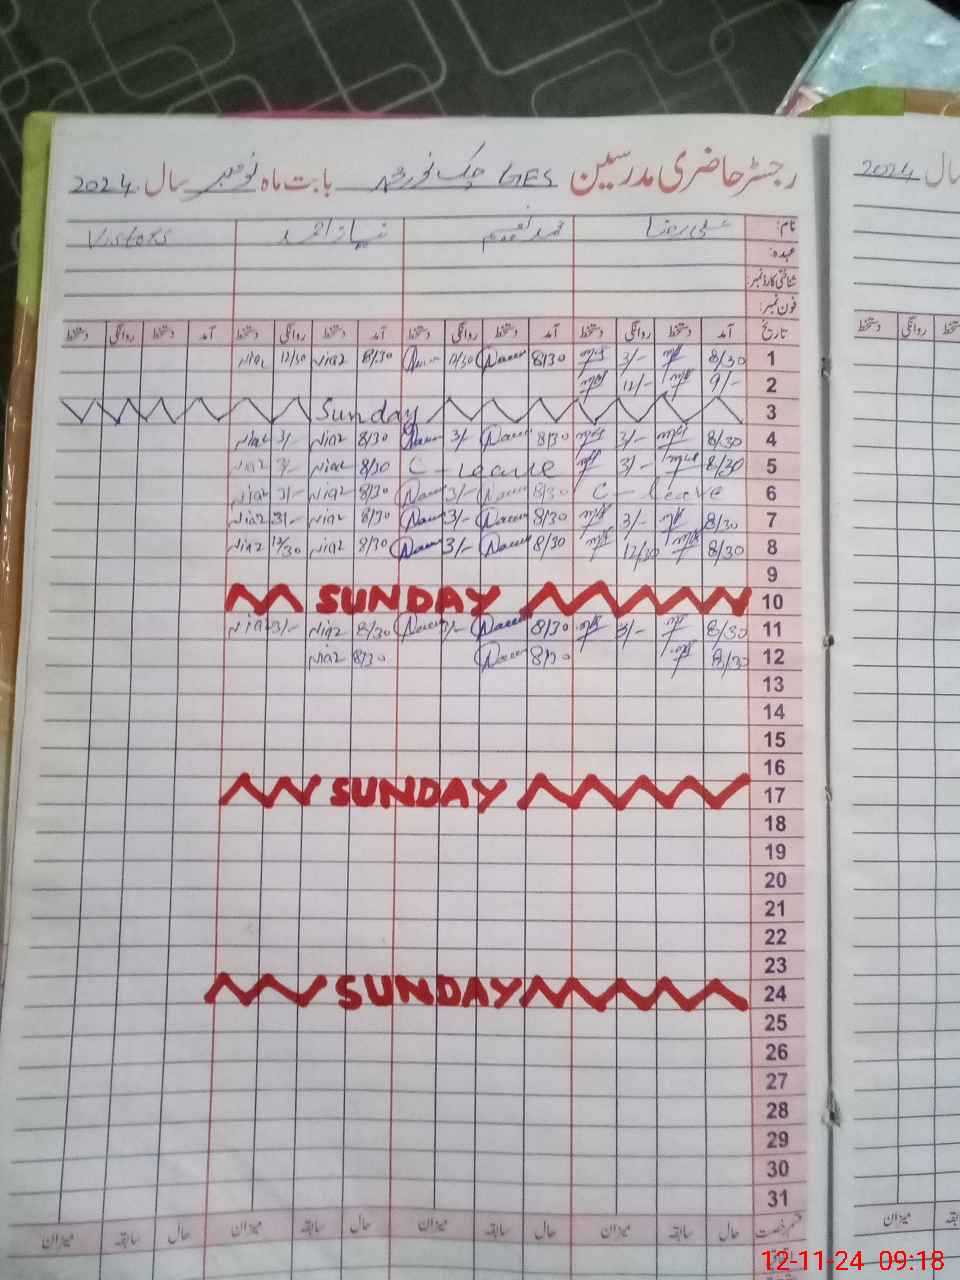 رجسٹر حاضری مدرسین GES چک نور محمد بابت ماہ نومبر سال 2024
نام: علی رضا محمد نعیم نیاز احمد Vistors
عہدہ:
شناختی کارڈ نمبر:
فون نمبر:
تاریخ آمد دستخط روانگی دستخط آمد دستخط روانگی دستخط آمد دستخط روانگی دستخط آمد دستخط روانگی دستخط
1 8/30 3/- 8/30 12/30 8/30 Niaz 12/30 Niaz
2 9/- 12/-
3 Sunday
4 8/30 3/- 8/30 3/- 8/30 Niaz 3/- Niaz
5 8/30 3/- C - leave 8/30 Niaz 3/- Niaz
6 C - leave 8/30 3/- 8/30 Niaz 3/- Niaz
7 8/30 3/- 8/30 3/- 8/30 Niaz 3/- Niaz
8 8/30 12/30 8/30 3/- 8/30 Niaz 12/30 Niaz
9
10 SUNDAY
11 8/30 3/- 8/30 8/30 Niaz 3/- Niaz
12 8/30 8/30 8/30 Niaz
13
14
15
16
17 SUNDAY
18
19
20
21
22
23
24 SUNDAY
25
26
27
28
29
30
31
حال سابقہ میزان حال سابقہ میزان حال سابقہ میزان حال سابقہ میزان
سال 2024
دستخط روانگی
میزان
12-11-24 09:18